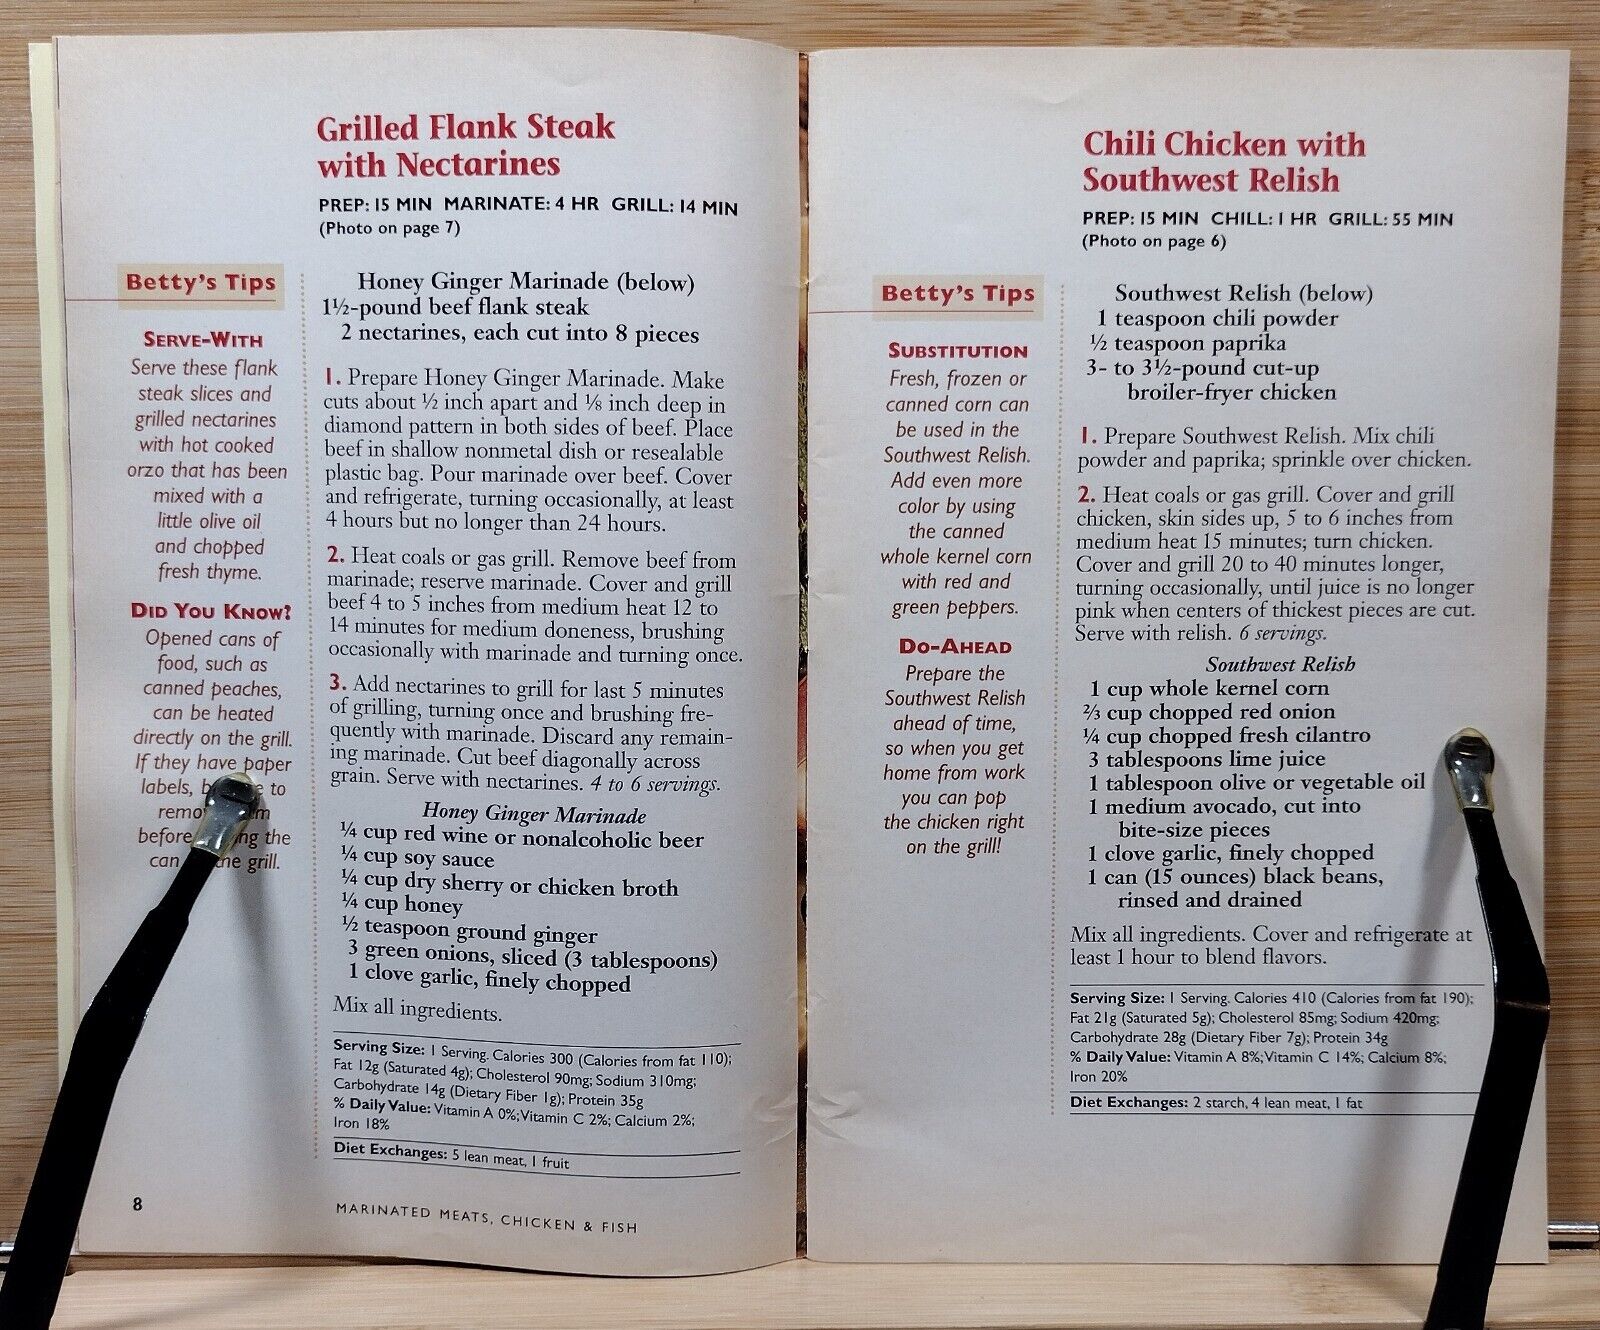 Grilled Flank Steak
with Nectarines
PREP: 15 MIN MARINATE: 4 HR GRILL: 14 MIN
(Photo on page 7)
Betty's Tips
SERVE-WITH
Serve these flank
steak slices and
grilled nectarines
with hot cooked
orzo that has been
mixed with a
little olive oil
and chopped
fresh thyme.
DID YOU KNOW?
Opened cans of
food, such as
canned peaches,
can be heated
directly on the grill.
If they have paper
labels, to
before the
can the grill.
Honey Ginger Marinade (below)
1½-pound beef flank steak
2 nectarines, each cut into 8 pieces
1. Prepare Honey Ginger Marinade. Make
cuts about ½ inch apart and ⅛ inch deep in
diamond pattern in both sides of beef. Place
beef in shallow nonmetal dish or resealable
plastic bag. Pour marinade over beef. Cover
and refrigerate, turning occasionally, at least
4 hours but no longer than 24 hours.
2. Heat coals or gas grill. Remove beef from
marinade; reserve marinade. Cover and grill
beef 4 to 5 inches from medium heat 12 to
14 minutes for medium doneness, brushing
occasionally with marinade and turning once.
3. Add nectarines to grill for last 5 minutes
of grilling, turning once and brushing fre-
quently with marinade. Discard any remain-
ing marinade. Cut beef diagonally across
grain. Serve with nectarines. 4 to 6 servings.
Honey Ginger Marinade
¼ cup red wine or nonalcoholic beer
¼ cup soy sauce
¼ cup dry sherry or chicken broth
¼ cup honey
½ teaspoon ground ginger
3 green onions, sliced (3 tablespoons)
1 clove garlic, finely chopped
Mix all ingredients.
Serving Size: 1 Serving. Calories 300 (Calories from fat 110);
Fat 12g (Saturated 4g); Cholesterol 90mg; Sodium 310mg;
Carbohydrate 14g (Dietary Fiber 1g); Protein 35g
% Daily Value: Vitamin A 0%; Vitamin C 2%; Calcium 2%;
Iron 18%
Diet Exchanges: 5 lean meat, 1 fruit
8
MARINATED MEATS, CHICKEN & FISH
Chili Chicken with
Southwest Relish
PREP: 15 MIN CHILL: 1 HR GRILL: 55 MIN
(Photo on page 6)
Betty's Tips
SUBSTITUTION
Fresh, frozen or
canned corn can
be used in the
Southwest Relish.
Add even more
color by using
the canned
whole kernel corn
with red and
green peppers.
DO-AHEAD
Prepare the
Southwest Relish
ahead of time,
so when you get
home from work
you can pop
the chicken right
on the grill!
Southwest Relish (below)
1 teaspoon chili powder
½ teaspoon paprika
3- to 3½-pound cut-up
broiler-fryer chicken
1. Prepare Southwest Relish. Mix chili
powder and paprika; sprinkle over chicken.
2. Heat coals or gas grill. Cover and grill
chicken, skin sides up, 5 to 6 inches from
medium heat 15 minutes; turn chicken.
Cover and grill 20 to 40 minutes longer,
turning occasionally, until juice is no longer
pink when centers of thickest pieces are cut.
Serve with relish. 6 servings.
Southwest Relish
1 cup whole kernel corn
⅔ cup chopped red onion
¼ cup chopped fresh cilantro
3 tablespoons lime juice
1 tablespoon olive or vegetable oil
1 medium avocado, cut into
bite-size pieces
1 clove garlic, finely chopped
1 can (15 ounces) black beans,
rinsed and drained
Mix all ingredients. Cover and refrigerate at
least 1 hour to blend flavors.
Serving Size: 1 Serving. Calories 410 (Calories from fat 190);
Fat 21g (Saturated 5g); Cholesterol 85mg; Sodium 420mg;
Carbohydrate 28g (Dietary Fiber 7g); Protein 34g
% Daily Value: Vitamin A 8%; Vitamin C 14%; Calcium 8%;
Iron 20%
Diet Exchanges: 2 starch, 4 lean meat, 1 fat